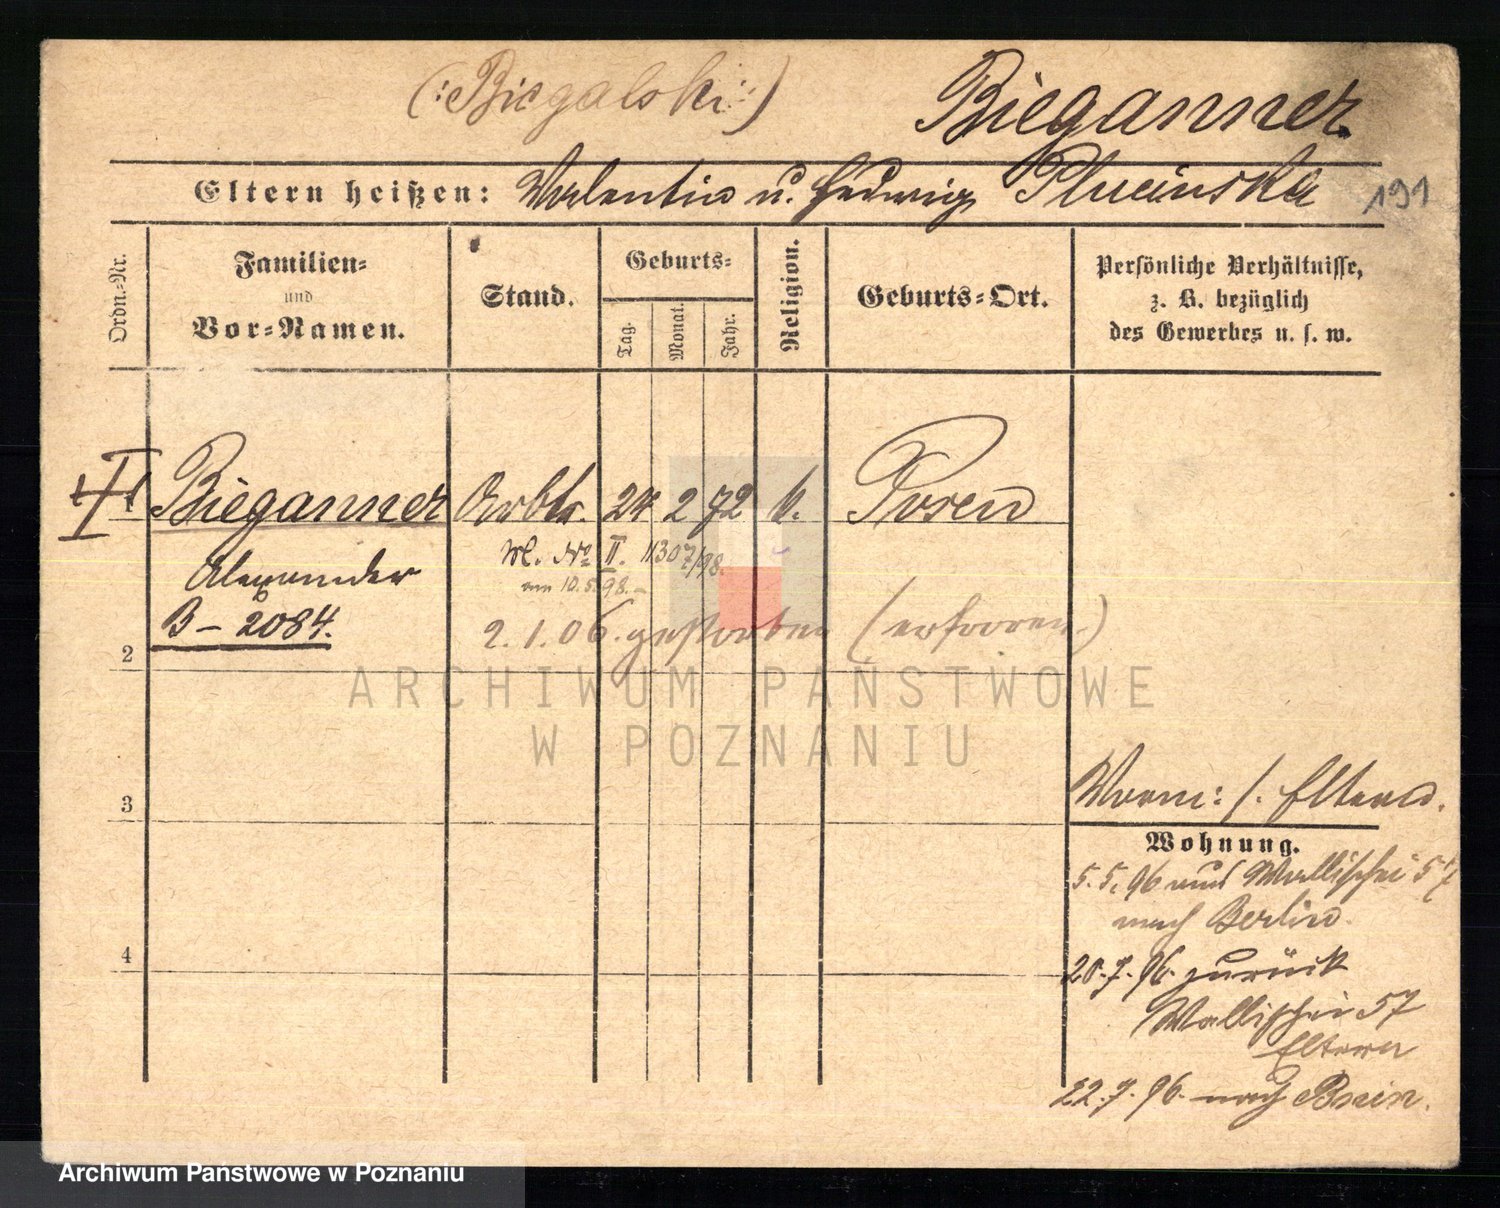 (: Biegalski :) Bieganner
Eltern heißen: Valentin u. Hedwig Plucinska 191
Ordn.-Nr.
Familien-
und
Vor-Namen.
Stand.
Geburts-
Tag.
Monat.
Jahr.
Religion.
Geburts-Ort.
Persönliche Verhältnisse,
z. B. bezüglich
des Gewerbes u. s. w.
Bieganner Arbtr. 24 2 72 k. Posen
Alexander
No II. 11307/98.
am 10.5.98.-
B - 2084.
2.1.06. gestorben (erfroren.)
2
3
4
Eltern.
Wohnung.
5.5.96 aus Wallischei 57
nach Berlin.
20.7.96. zurück
Wallischei 57
Eltern
22.7.96. nach Bnin.
ARCHIWUM PAŃSTWOWE
W POZNANIU
Archiwum Państwowe w Poznaniu